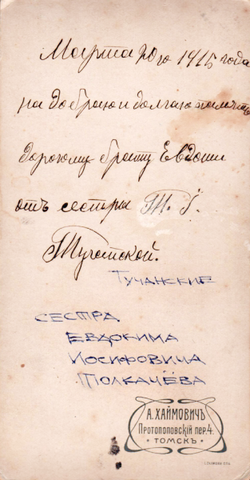 Марта 20го 1915 года
на добрую и долгую память
дорогому брату Евдоши
отъ сестры Т. I.
Тучатской.
Тучанские
сестра
Евдокима
Иосифовича
Толкачёва
А. ХАЙМОВИЧЪ
Протопоповскій пер. 4.
ТОМСКЪ